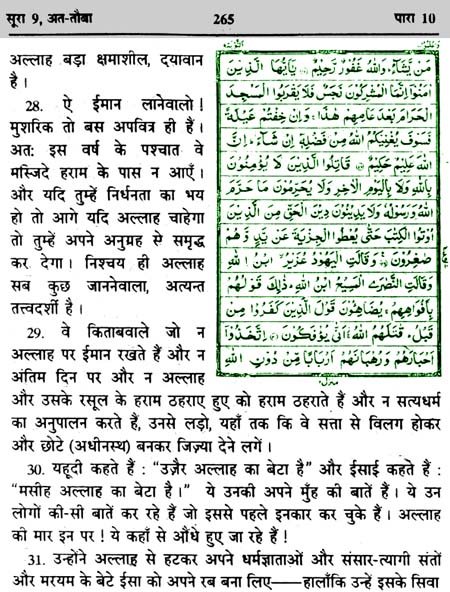 सूरा 9, अत-तौबा 265 पारा 10
अल्लाह बड़ा क्षमाशील, दयावान
है।
28. ऐ ईमान लानेवालो!
मुशरिक तो बस अपवित्र ही हैं।
अतः इस वर्ष के पश्चात वे
मस्जिदे हराम के पास न आएँ।
और यदि तुम्हें निर्धनता का भय
हो तो आगे यदि अल्लाह चाहेगा
तो तुम्हें अपने अनुग्रह से समृद्ध
कर देगा। निश्चय ही अल्लाह
सब कुछ जाननेवाला, अत्यन्त
तत्त्वदर्शी है।
29. वे किताबवाले जो न
अल्लाह पर ईमान रखते हैं और न
अंतिम दिन पर और न अल्लाह
और उसके रसूल के हराम ठहराए हुए को हराम ठहराते हैं और न सत्यधर्म
का अनुपालन करते हैं, उनसे लड़ो, यहाँ तक कि वे सत्ता से विलग होकर
और छोटे (अधीनस्थ) बनकर जिज़्या देने लगें।
30. यहूदी कहते हैं : “उज़ैर अल्लाह का बेटा है” और ईसाई कहते हैं :
“मसीह अल्लाह का बेटा है।” ये उनकी अपने मुँह की बातें हैं। ये उन
लोगों की-सी बातें कर रहे हैं जो इससे पहले इनकार कर चुके हैं। अल्लाह
की मार इन पर! ये कहाँ से औंधे हुए जा रहे हैं!
31. उन्होंने अल्लाह से हटकर अपने धर्मज्ञाताओं और संसार-त्यागी संतों
और मरयम के बेटे ईसा को अपने रब बना लिए——हालाँकि उन्हें इसके सिवा
مَنْ يَّشَآءُ ۭ وَاللّٰهُ غَفُوْرٌ رَّحِيْمٌ يٰٓاَيُّهَا الَّذِيْنَ
اٰمَنُوْٓا اِنَّمَا الْمُشْرِكُوْنَ نَجَسٌ فَلَا يَقْرَبُوا الْمَسْجِدَ
الْحَرَامَ بَعْدَ عَامِهِمْ هٰذَا ۚ وَاِنْ خِفْتُمْ عَيْلَةً
فَسَوْفَ يُغْنِيْكُمُ اللّٰهُ مِنْ فَضْلِهٖٓ اِنْ شَآءَ ۭ اِنَّ
اللّٰهَ عَلِيْمٌ حَكِيْمٌ قَاتِلُوا الَّذِيْنَ لَا يُؤْمِنُوْنَ
بِاللّٰهِ وَلَا بِالْيَوْمِ الْاٰخِرِ وَلَا يُحَرِّمُوْنَ مَا حَرَّمَ
اللّٰهُ وَرَسُوْلُهٗ وَلَا يَدِيْنُوْنَ دِيْنَ الْحَقِّ مِنَ الَّذِيْنَ
اُوْتُوا الْكِتٰبَ حَتّٰى يُعْطُوا الْجِزْيَةَ عَنْ يَّدٍ وَّهُمْ
صٰغِرُوْنَ وَقَالَتِ الْيَهُوْدُ عُزَيْرُۨ ابْنُ اللّٰهِ
وَقَالَتِ النَّصٰرَى الْمَسِيْحُ ابْنُ اللّٰهِ ۭ ذٰلِكَ قَوْلُهُمْ
بِاَفْوَاهِهِمْ ۚ يُضَاهِـُٔوْنَ قَوْلَ الَّذِيْنَ كَفَرُوْا مِنْ
قَبْلُ ۭ قٰتَلَهُمُ اللّٰهُ ۚ اَنّٰى يُؤْفَكُوْنَ اِتَّخَذُوْٓا
اَحْبَارَهُمْ وَرُهْبَانَهُمْ اَرْبَابًا مِّنْ دُوْنِ اللّٰهِ